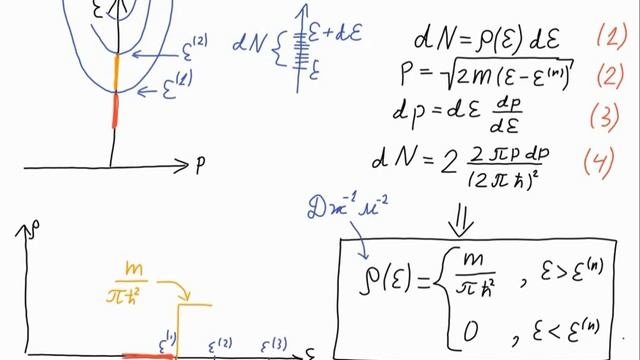 ε
ε⁽²⁾
ε⁽¹⁾
p
dN { ε+dε
ε
dN = ρ(ε) dε (1)
p = √2m(ε-ε⁽ⁿ⁾) (2)
dp = dε dp/dε (3)
dN = 2 2πp dp/(2πħ)² (4)
⇓
Дж⁻¹ м⁻²
ρ(ε) = { m/πħ² , ε>ε⁽ⁿ⁾
0 , ε<ε⁽ⁿ⁾
ρ
m/πħ²
ε⁽¹⁾ ε⁽²⁾ ε⁽³⁾ ε